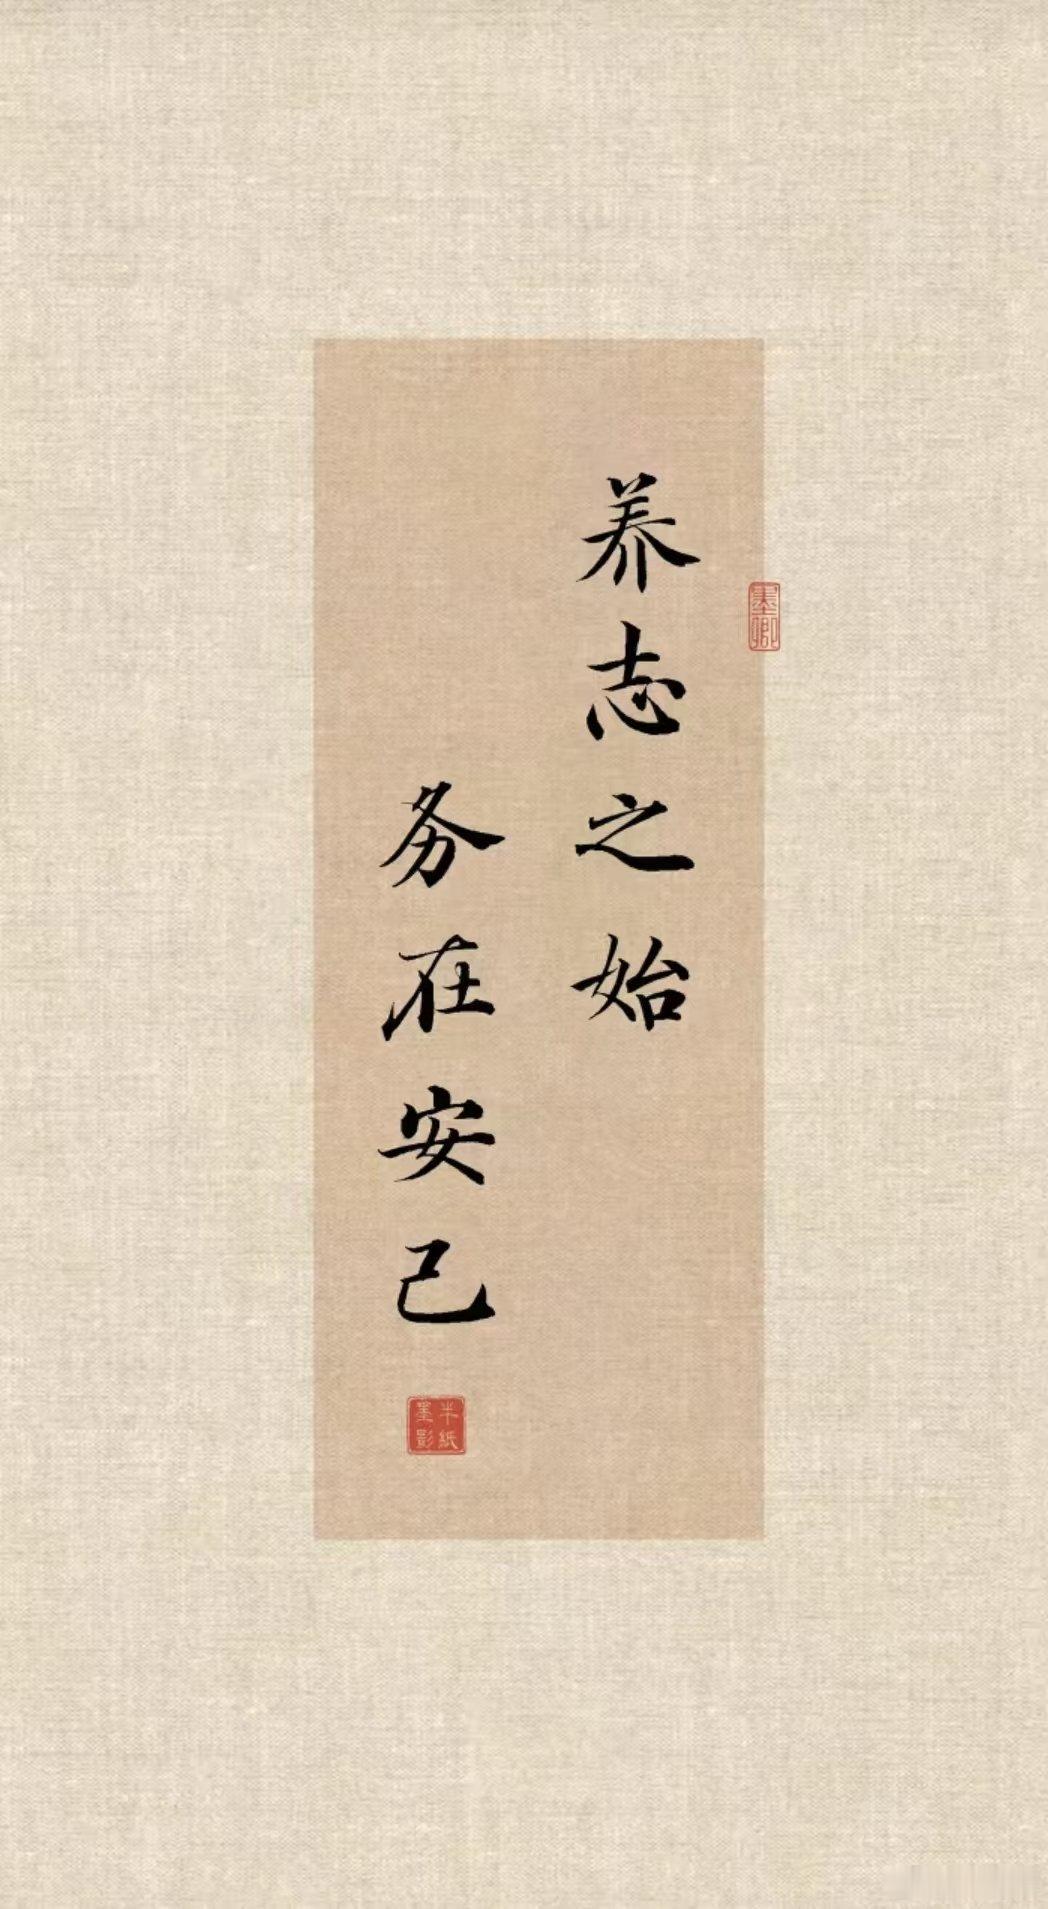 养志之始
务在安己
墨卿
半纸
墨影